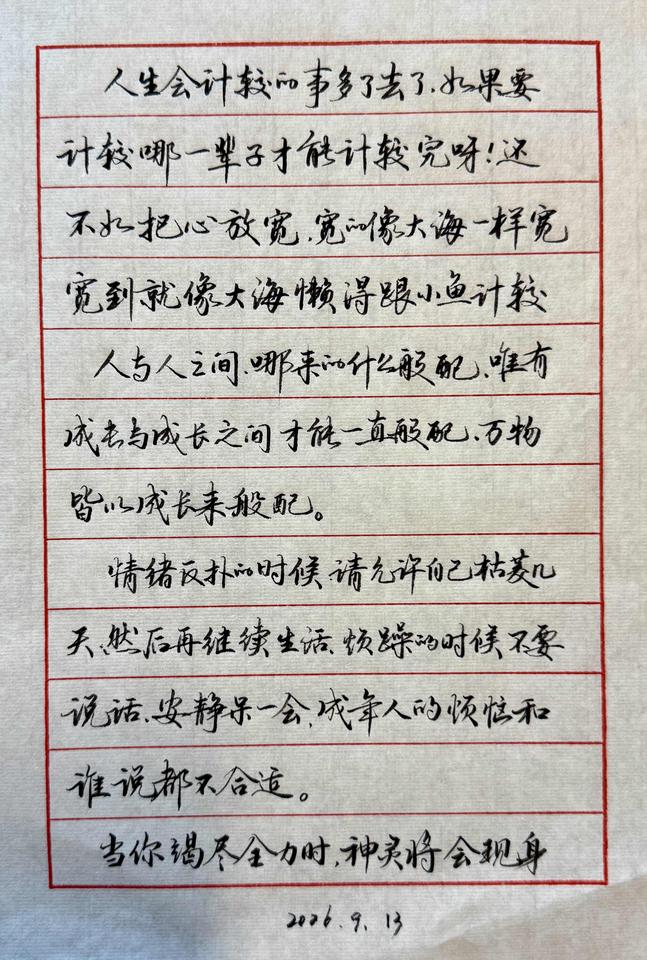 人生会计较的事多了去了.如果要
计较哪一辈子才能计较完呀!还
不如把心放宽.宽的像大海一样宽
宽到就像大海懒得跟小鱼计较
人与人之间.哪来的什么般配.唯有
成长与成长之间才能一直般配.万物
皆以成长来般配。
情绪反扑的时候.请允许自己枯萎几
天.然后再继续生活.烦躁的时候不要
说话.安静呆一会.成年人的烦恼和
谁说都不合适。
当你竭尽全力时.神灵将会现身
2026.9.13